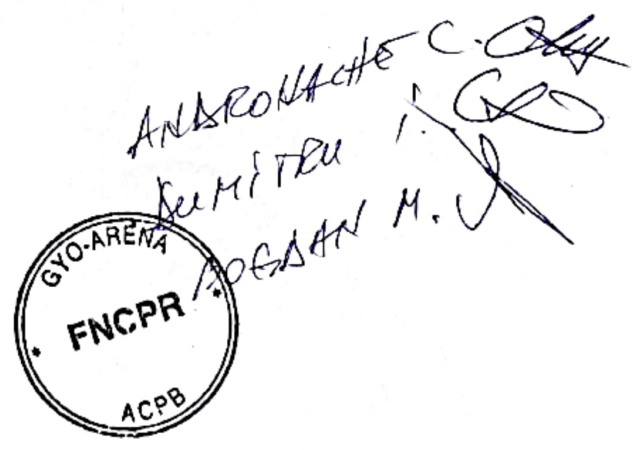 ANDRONACHE C.
DUMITRU I.
BOGDAN M.
GYO-ARENA
FNCPR
ACPB